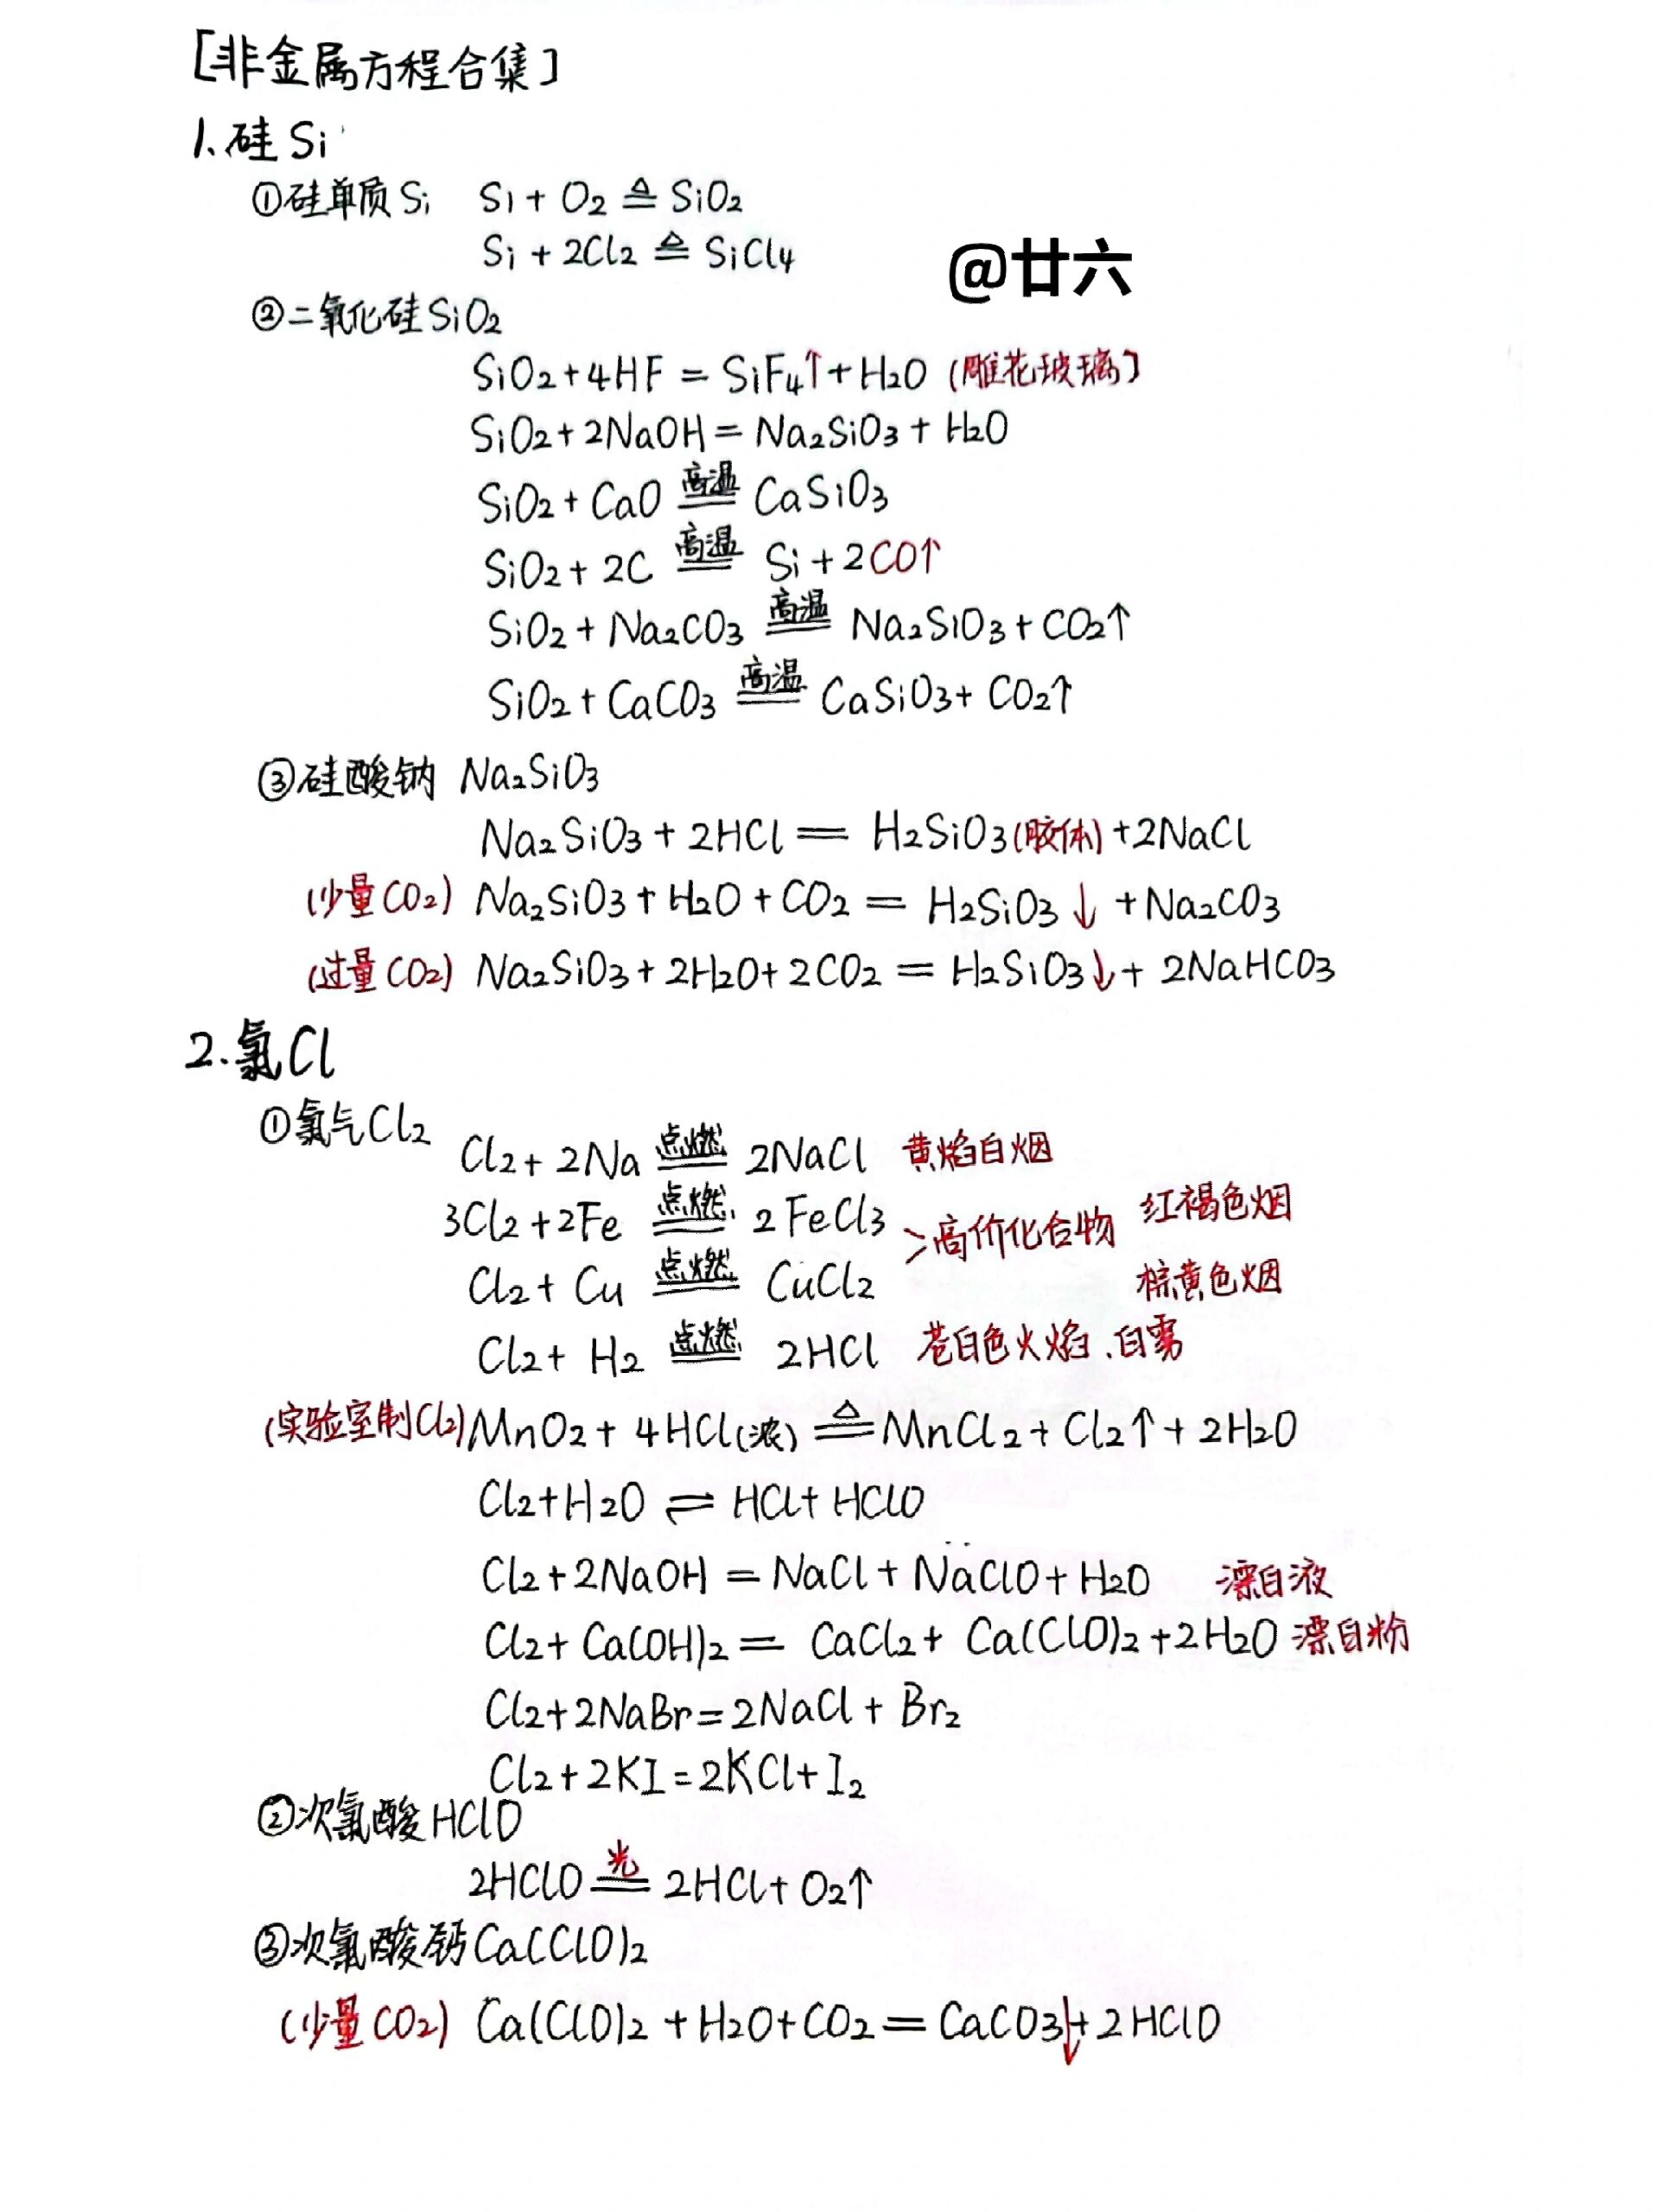 [非金属方程合集]
1.硅Si
①硅单质Si Si+O2 ≜ SiO2
Si+2Cl2 ≜ SiCl4
@廿六
②二氧化硅SiO2
SiO2+4HF=SiF4↑+H2O (雕花玻璃]
SiO2+2NaOH=Na2SiO3+H2O
SiO2+CaO 高温 CaSiO3
SiO2+2C 高温 Si+2CO↑
SiO2+Na2CO3 高温 Na2SiO3+CO2↑
SiO2+CaCO3 高温 CaSiO3+CO2↑
③硅酸钠 Na2SiO3
Na2SiO3+2HCl=H2SiO3(胶体)+2NaCl
(少量CO2) Na2SiO3+H2O+CO2=H2SiO3↓+Na2CO3
(过量CO2) Na2SiO3+2H2O+2CO2=H2SiO3↓+2NaHCO3
2.氯Cl
①氯气Cl2
Cl2+2Na 点燃 2NaCl 黄焰白烟
3Cl2+2Fe 点燃 2FeCl3 >高价化合物 红褐色烟
Cl2+Cu 点燃 CuCl2 棕黄色烟
Cl2+H2 点燃 2HCl 苍白色火焰.白雾
(实验室制Cl2)MnO2+4HCl(浓) ≜ MnCl2+Cl2↑+2H2O
Cl2+H2O⇌HCl+HClO
Cl2+2NaOH=NaCl+NaClO+H2O 漂白液
Cl2+Ca(OH)2=CaCl2+Ca(ClO)2+2H2O 漂白粉
Cl2+2NaBr=2NaCl+Br2
Cl2+2KI=2KCl+I2
②次氯酸HClO
2HClO 光 2HCl+O2↑
③次氯酸钙Ca(ClO)2
(少量CO2) Ca(ClO)2+H2O+CO2=CaCO3↓+2HClO